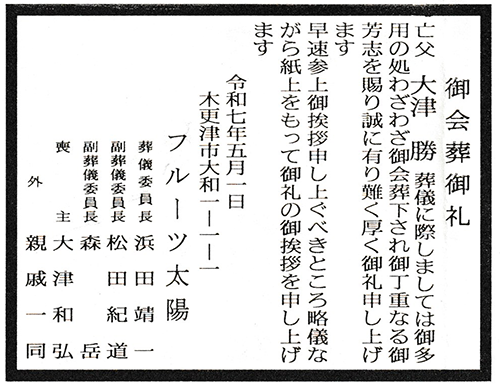 御会葬御礼
亡父 大津 勝 葬儀に際しましては御多
用の処わざわざ御会葬下され御丁重なる御
芳志を賜り誠に有り難く厚く御礼申し上げ
ます
早速参上御挨拶申し上ぐべきところ略儀な
がら紙上をもって御礼の御挨拶を申し上げ
ます
令和七年五月一日
木更津市大和一―一―一
フルーツ太陽
葬儀委員長 浜田靖一
副葬儀委員長 松田紀道
副葬儀委員長 森 岳
喪主 大津和弘
外 親戚一同